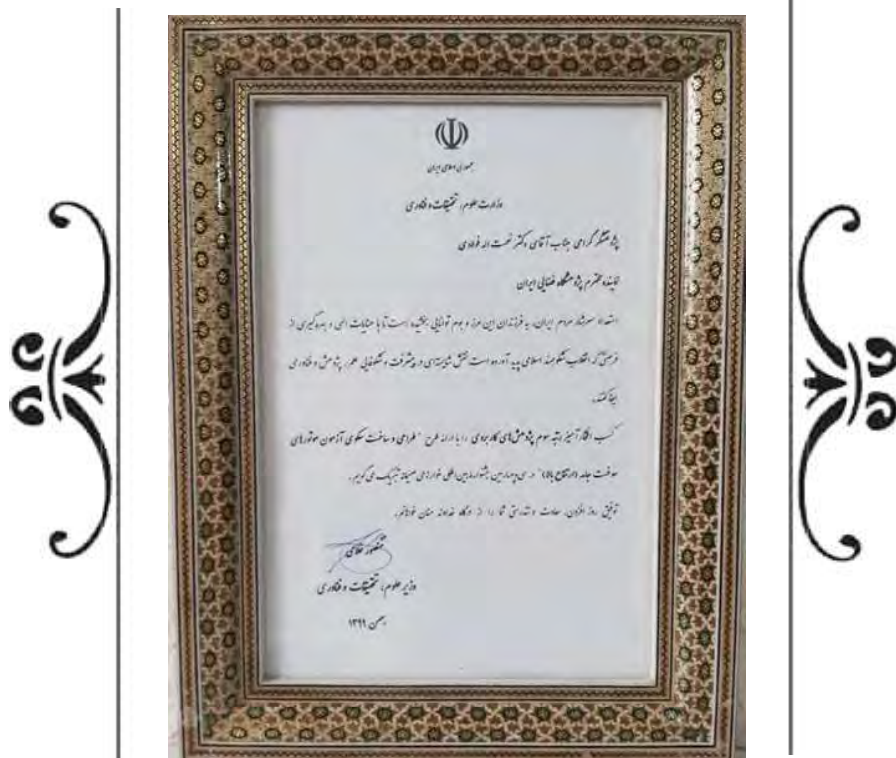 جمهوری اسلامی ایران
وزارت علوم، تحقیقات و فناوری
پژوهشگر گرامی جناب آقای دکتر نعمت اله فولادی
نماینده محترم پژوهشگاه فضایی ایران
استعداد سرشار مردم ایران، به فرزندان این مرز و بوم توانایی بخشیده است تا با عنایات الهی و بهره‌گیری از
فرصتی که انقلاب شکوهمند اسلامی پدید آورده است نقش شایسته‌ای در پیشرفت و شکوفایی علم، پژوهش و فناوری
ایفا کنند.
کسب افتخارآمیز رتبه سوم پژوهش‌های کاربردی را با ارائه طرح "طراحی و ساخت سکوی آزمون موتورهای
سوخت جامد (ارتفاع بالا)" در سی و چهارمین جشنواره بین‌المللی خوارزمی صمیمانه تبریک می‌گویم.
توفیق روز افزون، سعادت و تندرستی شما را از درگاه خداوند منان خواهانم.
منصور غلامی
وزیر علوم، تحقیقات و فناوری
بهمن ۱۳۹۹